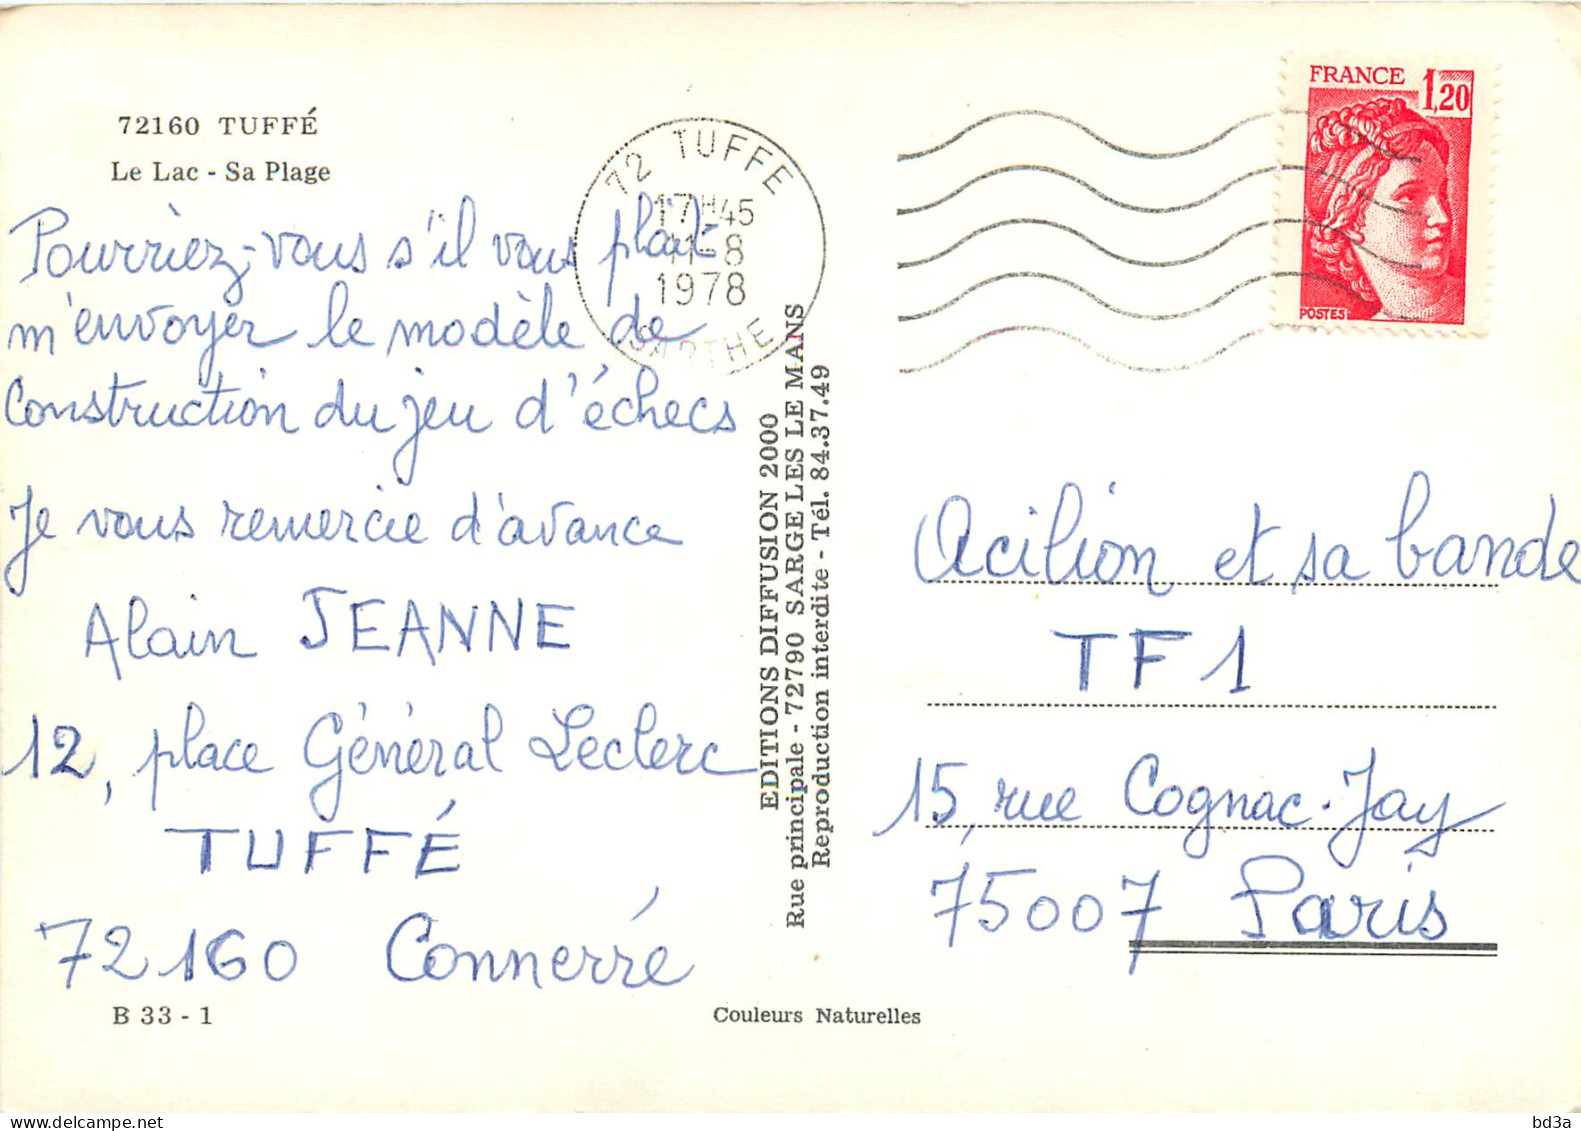 72160 TUFFÉ
Le Lac - Sa Plage
Pourriez-vous s'il vous plaît
m'envoyer le modèle de
construction du jeu d'échecs
Je vous remercie d'avance
Alain JEANNE
12, place Général Leclerc
TUFFÉ
72160 Connerré
B 33 - 1
72 TUFFE
17H45
11-8
1978
SARTHE
EDITIONS DIFFUSION 2000
Rue principale - 72790 SARGE LES LE MANS
Reproduction interdite - Tél. 84.37.49
Couleurs Naturelles
FRANCE 1,20
POSTES
Acilion et sa bande
TF1
15, rue Cognac-Jay
75007 Paris
delcampe.net
bd3a